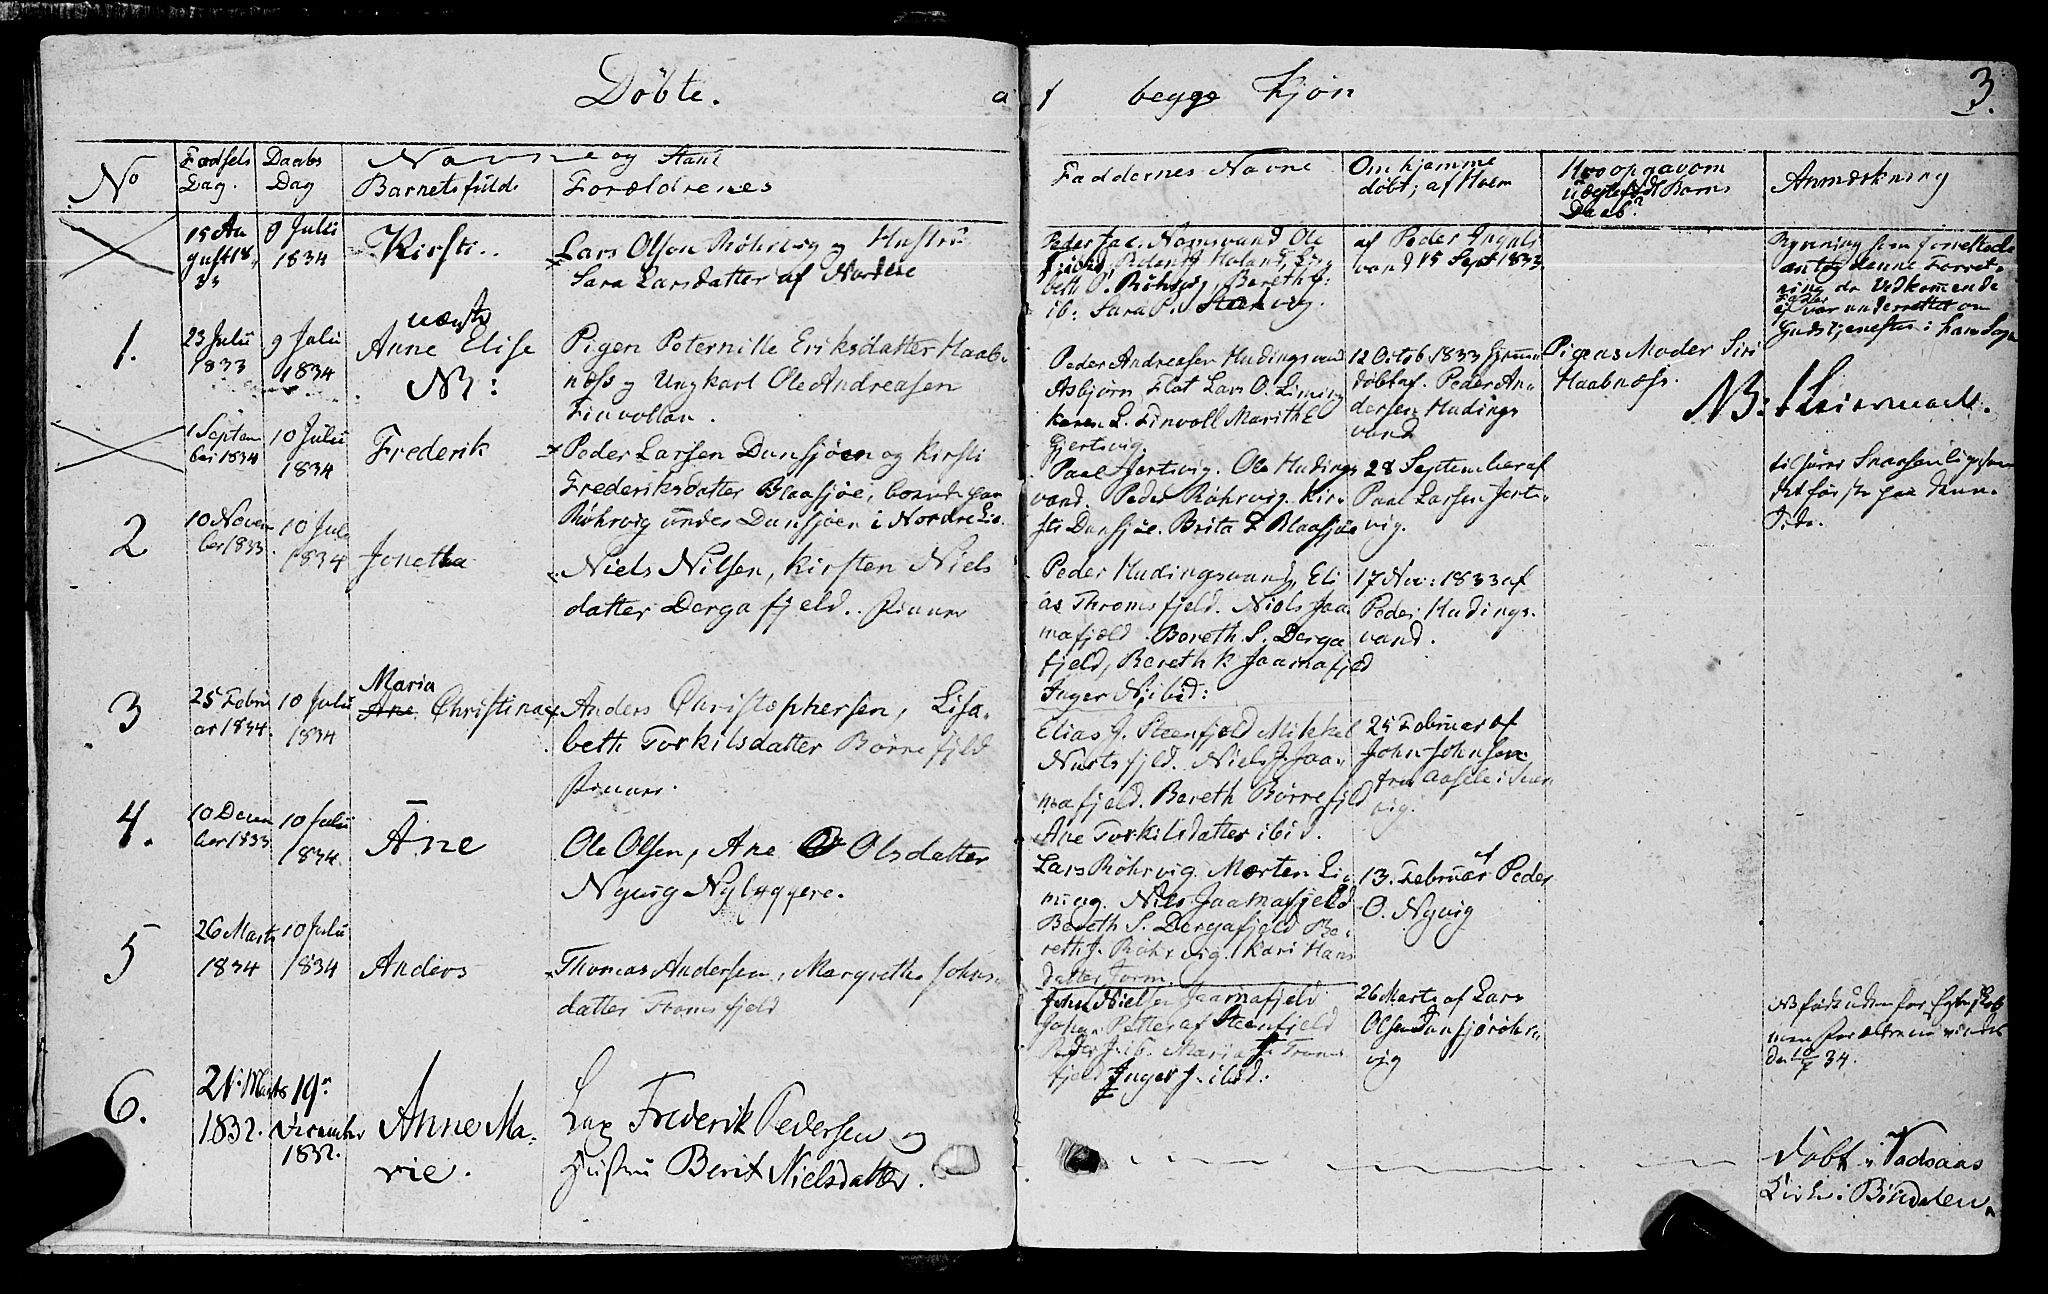 Döbte. af begge Kjön 3.
No
Fødsels Dag.
Daabs Dag
Navne og Stand
Barnets fulde
Forældrenes
Faddernes Navne
Om hjemme döbt, af Hvem
Daab?
Anmærkning
15 August 1833
9 Julii 1834
Kirsti
Lars Olsen Röhrvig og Hustru
Sara Larsdatter af Nordlie
Peder Jac. Namsvand Ole
beth O. Röhrvig, Bereth
ib: Sara P.
af Peder
vand 15 Sept 1833
1.
23 Julii 1833
9 Julii 1834
uægte
Anne Elise
NB:
Pigen Peternille Eriksdatter Haab
næss og Ungkarl Ole Andreasen
Finvollan.
Peder Andreasen Hudingsvand
Asbjörn Flat Lars O. Liming
Karen L. Finvoll Marithe
Gjertsvig
12 Octob. 1833 hjemme
döbt af Peder An
dersen Hudings
vand
Pigens Moder Siri
Haabnæss.
NB:
1 Septem
ber 1834
10 Julii 1834
Frederik
Peder Larsen Dunsjöen og Kirsti
Frederiksdatter Blaasjöe, boende paa
Röhrvig under Dunsjöen i Nordre Lie
Paal Gjertsvig. Ole Hudings
vand. Peder Röhrvig. Kir
sti Dunsjöe. Brita L Blaasjöe
28 September af
Paal Larsen Jerts
vig.
2
10 Novem
ber 1833
10 Juli 1834
Jonetha
Niels Nilsen, Kirsten Niels
datter Dergafjeld. Finner
Peder Hudingsvand, Eli
as Thromsfjeld. Niels Jaa
mafjæld. Bereth S. Derga
fjeld, Bereth K Jaamafjeld
Inger N. ibid:
17 Nov: 1833 af
Peder Hudings
vand.
3
25 Febru
ar 1834.
10 Julii 1834
Maria
Ane Christina
Anders Christophersen, Lisa
beth Torkilsdatter Börrefjeld
Finner.
Elias J. Steenfjeld Mikkel
Nürtsfjeld. Niels J. Jaa
mafjeld. Bereth Börrefjeld
Ane Torkilsdatter ibid.
25 Februar af
John Johnsen
vig.
4.
10 Decem
ber 1833
10 Julii 1834
Ane
Ole Olsen, Ane Olsdatter
Nyvig Nybyggere.
Lars Röhrvig. Morten Li
ming. Niels Jaamafjeld
Bereth S. Dergafjeld Be
reth J. Röhrvig. Kari Hans
datter Jorm.
13. Februar af Peder
O. Nyvig
5
26 Marts
1834
10 Julii
1834
Anders
Thomas Andersen, Margrethe Johns
datter Tromsfjeld
John Nielsen Jaamafjeld
Petter af Steenfjeld
Peder J. ib. Maria J. Troms
fjeld Inger J. ibid:
26 Marts af Lars
Olsen Dunsjöröhr
vig
34.
6.
21. Marts
1832.
19.
December
1832.
Anne Ma
rie.
Lap Frederik Pedersen og
Hustru Berit Nielsdatter.
Döbt i Vadsaas
Kirke i Bindalen.